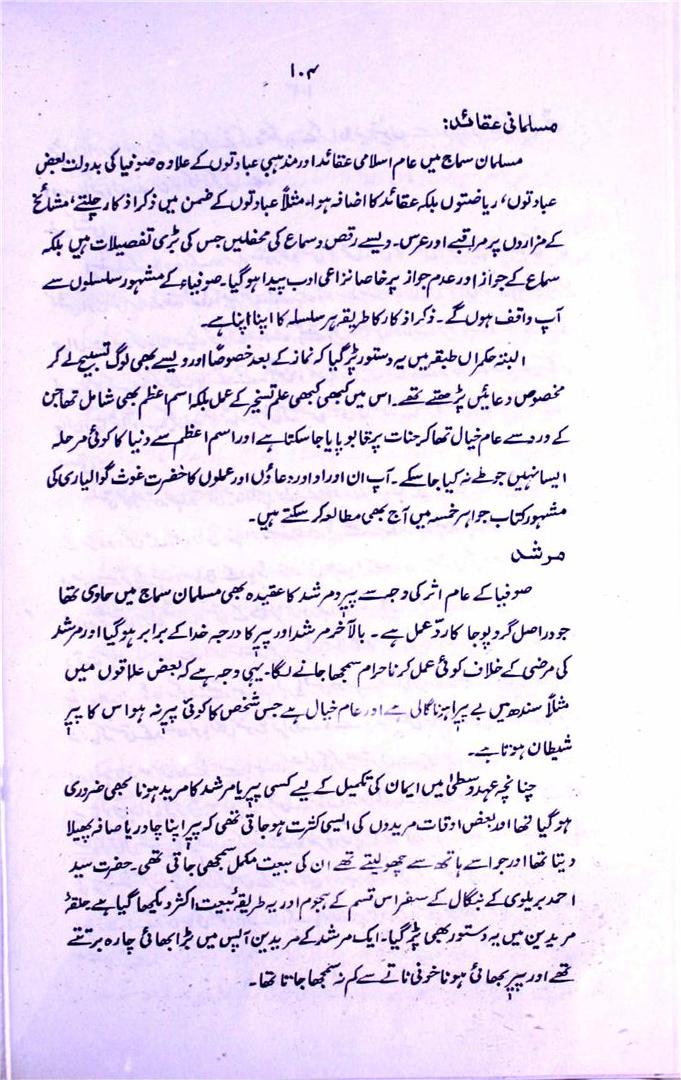 ۱۰۴
مسلمانی عقائد:
مسلمان سماج میں عام اسلامی عقائد اور مذہبی عبادتوں کے علاوہ صوفیا کی بدولت بعض
عبادتوں، ریاضتوں بلکہ عقائد کا اضافہ ہوا، مثلاً عبادتوں کے ضمن میں ذکر اذکار چلتے، مشائخ
کے مزاروں پر مراقبے اور عرس۔ ویسے رقص و سماع کی محفلیں جس کی بڑی تفصیلات ہیں بلکہ
سماع کے جواز اور عدم جواز پر خاصا نزاعی ادب پیدا ہوگیا۔ صوفیاء کے مشہور سلسلوں سے
آپ واقف ہوں گے۔ ذکر اذکار کا طریقہ ہر سلسلہ کا اپنا اپنا ہے۔
البتہ حکمراں طبقہ میں یہ دستور پڑ گیا کہ نماز کے بعد خصوصاً اور ویسے بھی لوگ تسبیح لے کر
مخصوص دعائیں پڑھتے تھے۔ اس میں کبھی کبھی علم تسخیر کے عمل بلکہ اسم اعظم بھی شامل تھا جن
کے ورد سے عام خیال تھا کہ جنات پر قابو پایا جاسکتا ہے اور اسم اعظم سے دنیا کا کوئی مرحلہ
ایسا نہیں جو طے نہ کیا جاسکے۔ آپ ان اوراد اور دعاؤں اور عملوں کا حضرت غوث گوالیاری کی
مشہور کتاب جواہر خمسہ میں آج بھی مطالعہ کرسکتے ہیں۔
مرشد
صوفیا کے عام اثر کی وجہ سے پیر و مرشد کا عقیدہ بھی مسلمان سماج میں حاوی تھا
جو دراصل گرو پوجا کا ردّ عمل ہے۔ بالآخر مرشد اور پیر کا درجہ خدا کے برابر ہوگیا اور مرشد
کی مرضی کے خلاف کوئی عمل کرنا حرام سمجھا جانے لگا۔ یہی وجہ ہے کہ بعض علاقوں میں
مثلاً سندھ میں بے پیرا ہونا گالی ہے اور عام خیال ہے جس شخص کا کوئی پیر نہ ہو اس کا پیر
شیطان ہوتا ہے۔
چنانچہ عہد وسطیٰ میں ایمان کی تکمیل کے لیے کسی پیر یا مرشد کا مرید ہونا بھی ضروری
ہوگیا تھا اور بعض اوقات مریدوں کی ایسی کثرت ہو جاتی تھی کہ پیر اپنا چادر یا صافہ پھیلا
دیتا تھا اور جو اسے ہاتھ سے چھو لیتے تھے ان کی بیعت مکمل سمجھی جاتی تھی۔ حضرت سید
احمد بریلوی کے بنگال کے سفر اس قسم کے ہجوم اور یہ طریقۂ بیعت اکثر دیکھا گیا ہے حلقۂ
مریدین میں یہ دستور بھی پڑ گیا۔ ایک مرشد کے مریدین آپس میں بڑا بھائی چارہ برتتے
تھے اور پیر بھائی ہونا خونی ناتے سے کم نہ سمجھا جاتا تھا۔